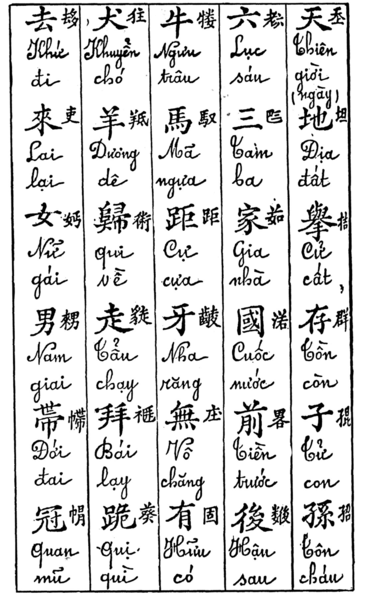 天 𡗶
Thiên
giời
(ngày)
地 坦
Địa
đất
擧 拮
Cử
cất,
存 群
Tồn
còn
子 𡥵
Tử
con
孫 招
Tôn
cháu
六
Lục
sáu
三 𠀧
Tam
ba
家 茹
Gia
nhà
國 渃
Cuốc
nước
前 畧
Tiền
trước
後
Hậu
sau
牛
Ngưu
trâu
馬 馭
Mã
ngựa
距 距
Cự
cựa
牙
Nha
răng
無 庄
Vô
chăng
有 固
Hữu
có
犬
Khuyển
chó
羊 羝
Dương
dê
歸 衛
qui
về
走
Tẩu
chạy
拜
Bái
lạy
跪 葵
Quị
quì
去
Khứ
đi
來 吏
Lai
lại
女
Nữ
gái
男
Nam
giai
帶
Đới
đai
冠 帽
quan
mũ